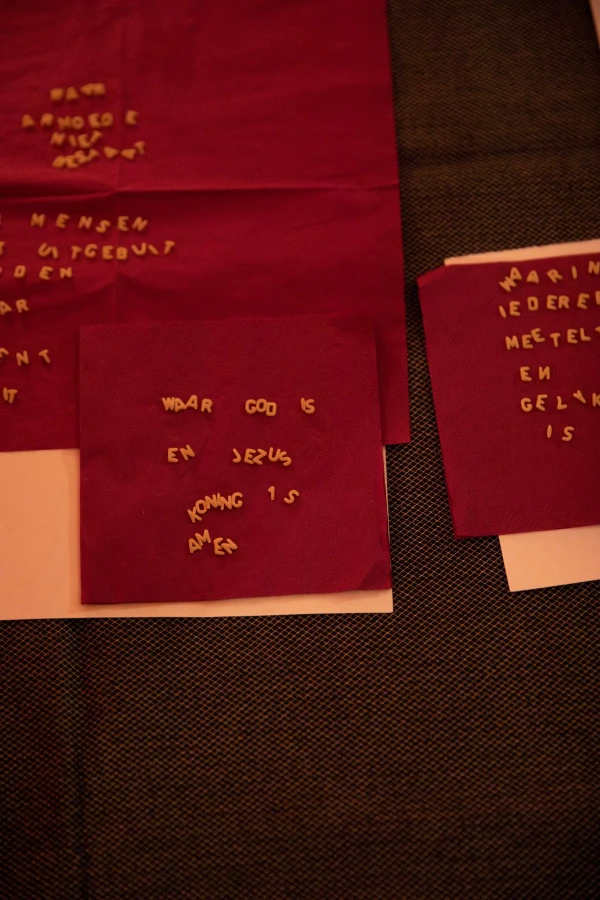 WAAR
ARMOEDE
NIET
BESTAAT
MENSEN
UITGEBUIT
DEN
AR
NT
IT
WAAR GOD IS
EN JEZUS
KONING 1S
AMEN
WAARIN
IEDERE
MEETELT
EN
GELYK
IS